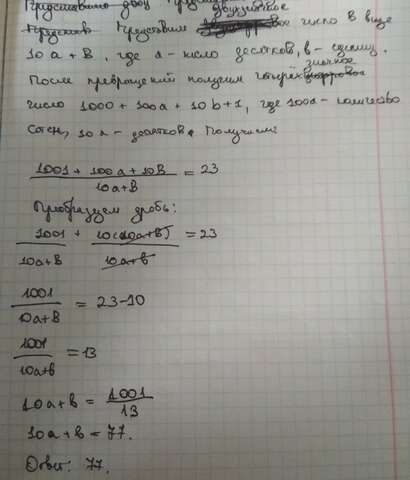 Представим двузначное
Представим число в виде
10a + в, где a - число десятков, в - единиц.
После превращений получим четырёхзначное
число 1000 + 100a + 10b + 1, где 100a - количество
сотен, 10 в - десятков. Получим:
1001 + 100a + 10в / 10a+в = 23
Преобразуем дробь:
1001 / 10a+в + 10(10a+в) / 10a+в = 23
1001 / 10a+в = 23-10
1001 / 10a+в = 13
10a+в = 1001 / 13
10a+в = 77.
Ответ: 77.